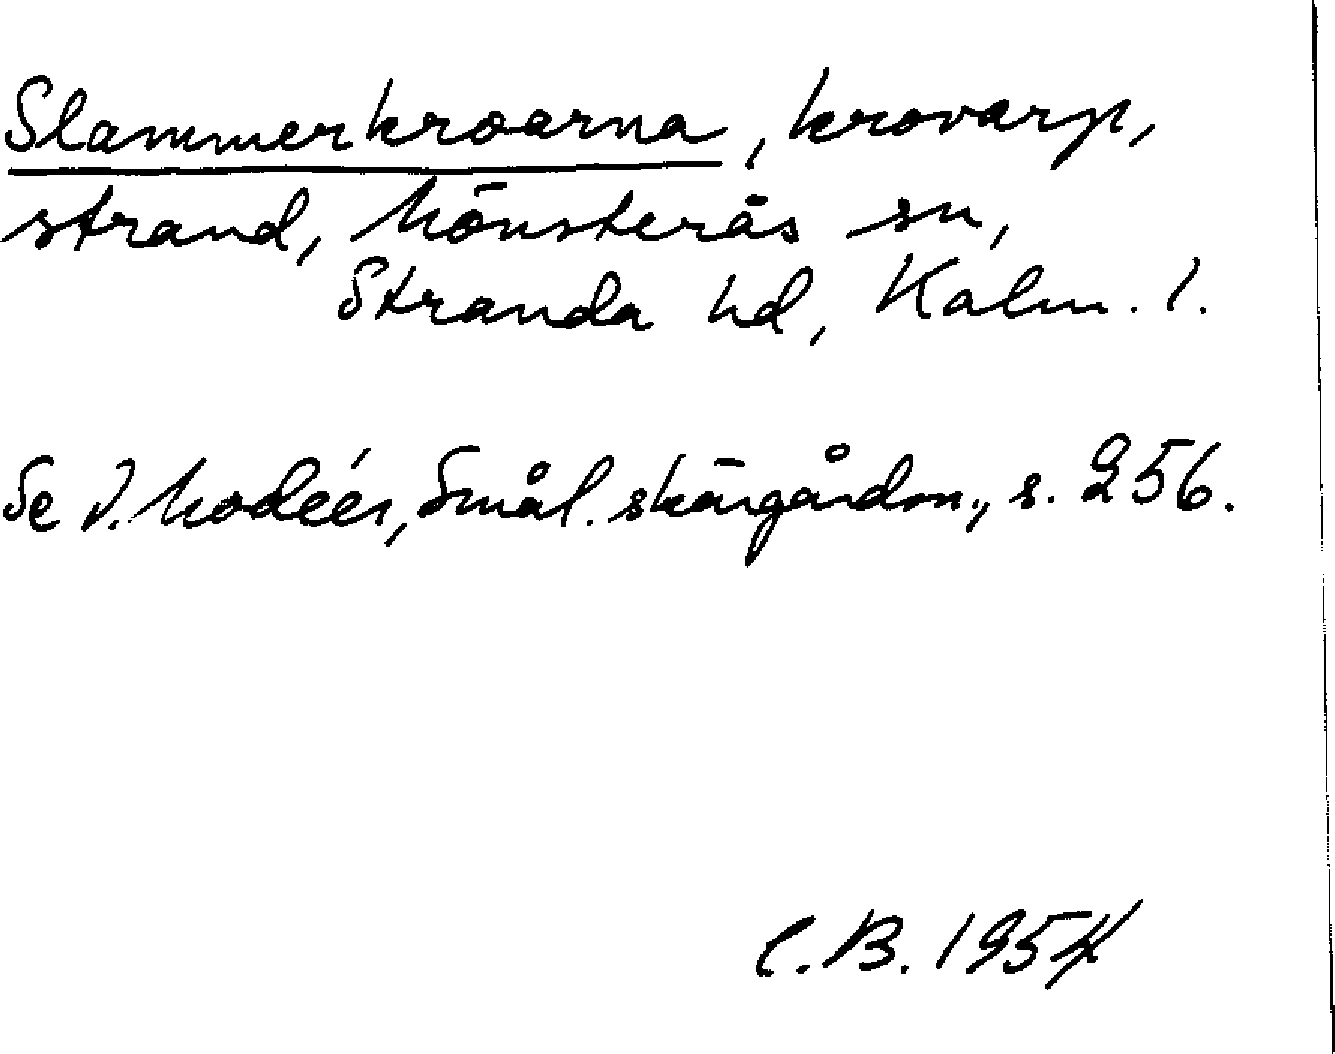 Slammerkroarna, krovarp,
strand, Mönsterås sn,
Stranda hd, Kalm. l.
Se I. Modéer, Smål. skärgårdsn., s. 256.
C.B. 1954